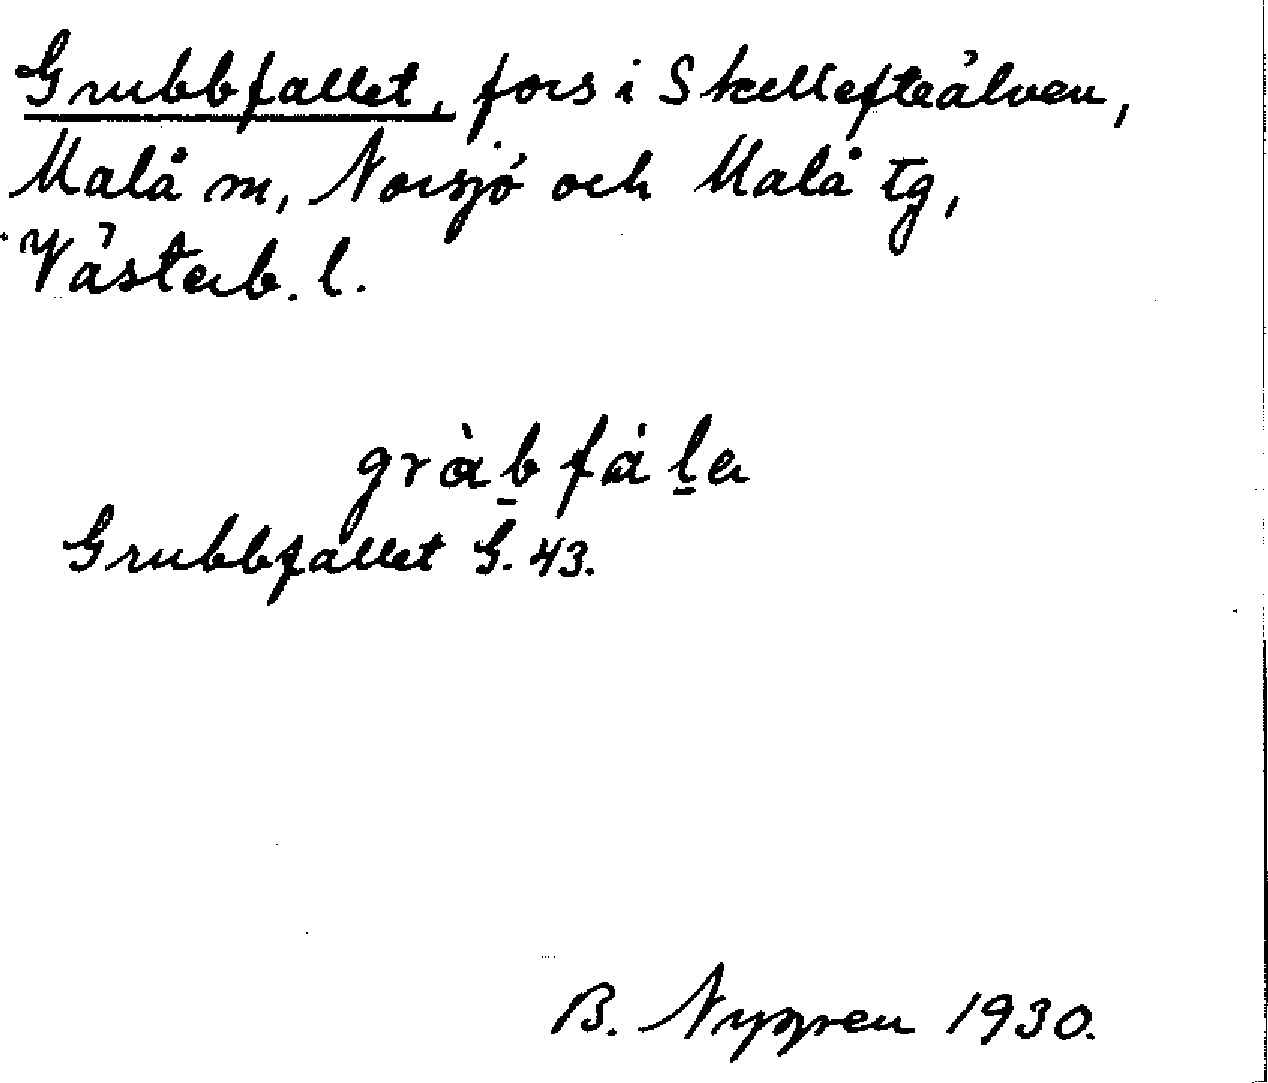 Grubbfallet, fors i Skellefteälven,
Malå m, Norsjö och Malå tg,
Västerb. l.
gràb̲fál̲a
Grubbfallet G. 43.
B. Nygren 1930.